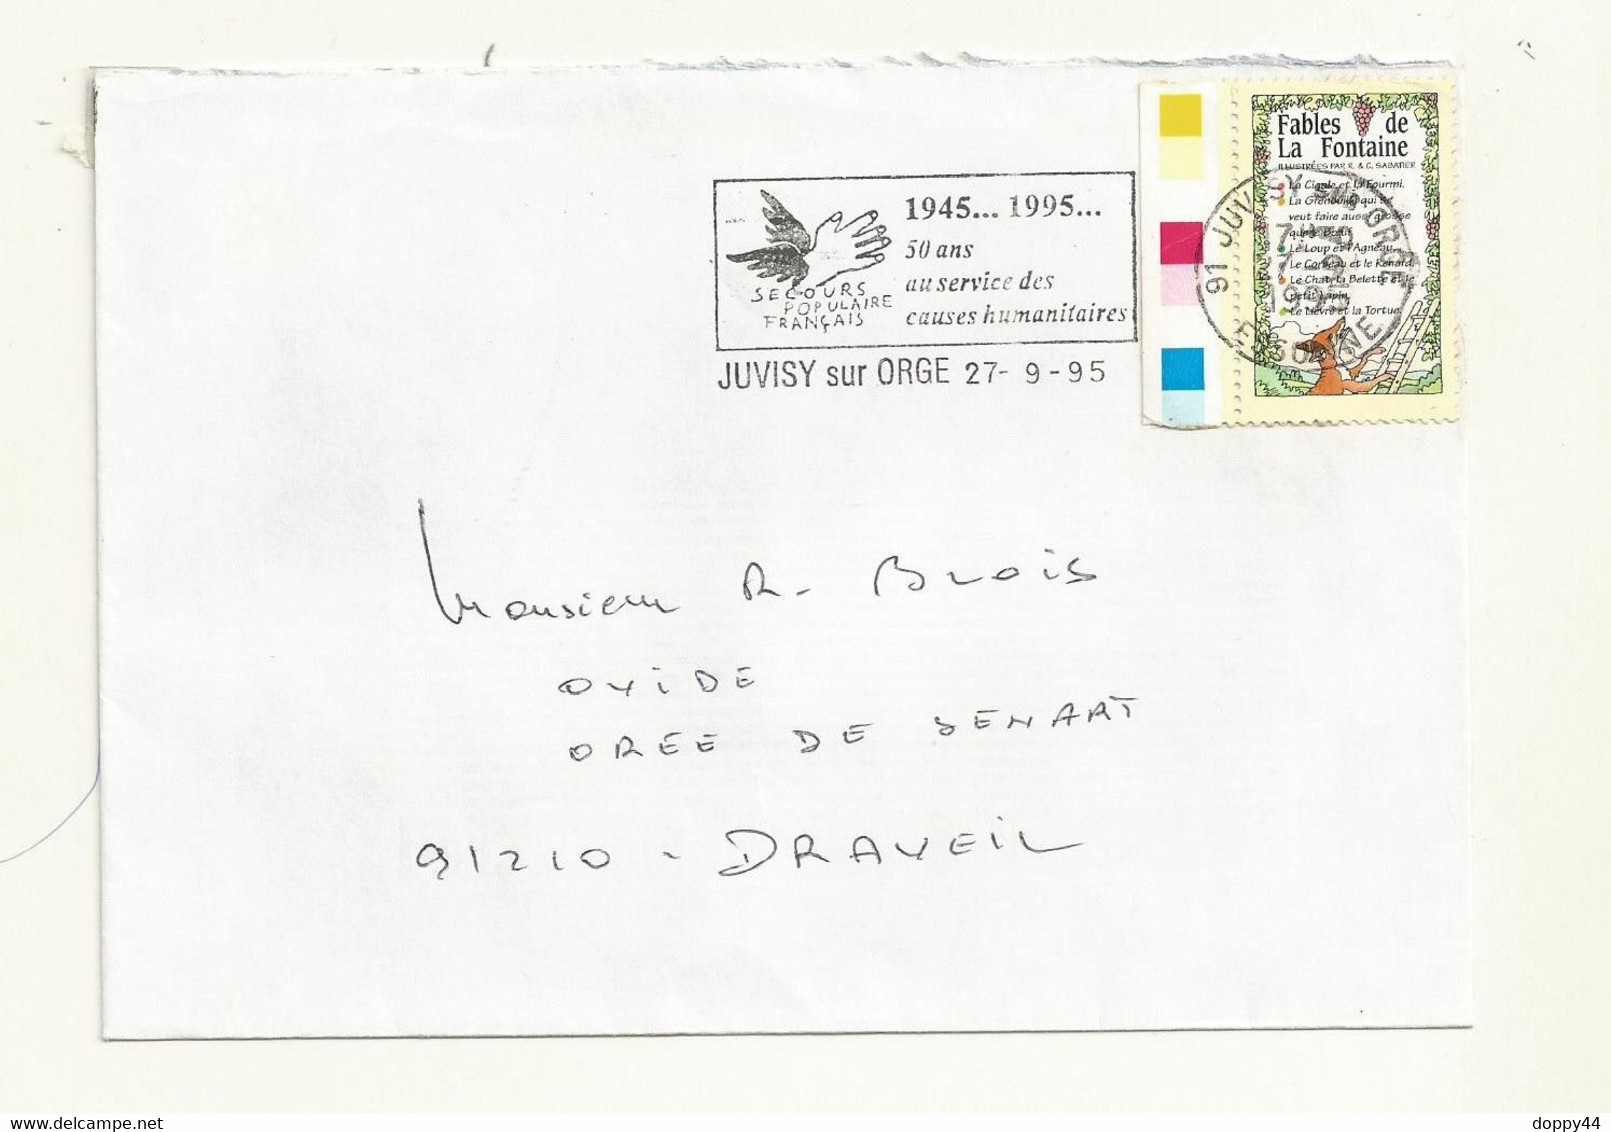 1945... 1995...
50 ans
au service des
causes humanitaires
SECOURS
POPULAIRE
FRANÇAIS
JUVISY sur ORGE 27- 9 -95
Fables de
La Fontaine
ILLUSTRÉES PAR R. & C. SABATIER
La Cigale et la Fourmi.
La Grenouille qui se
veut faire aussi grosse
que le Bœuf.
Le Loup et l'Agneau.
Le Corbeau et le Renard.
Le Chat, la Belette et le
petit Lapin.
Le Lièvre et la Tortue.
91 JUVISY SUR ORGE
1995
ESSONNE
Monsieur R. Blois
OVIDE
OREE DE SENART
91210 - DRAVEIL
doppy44